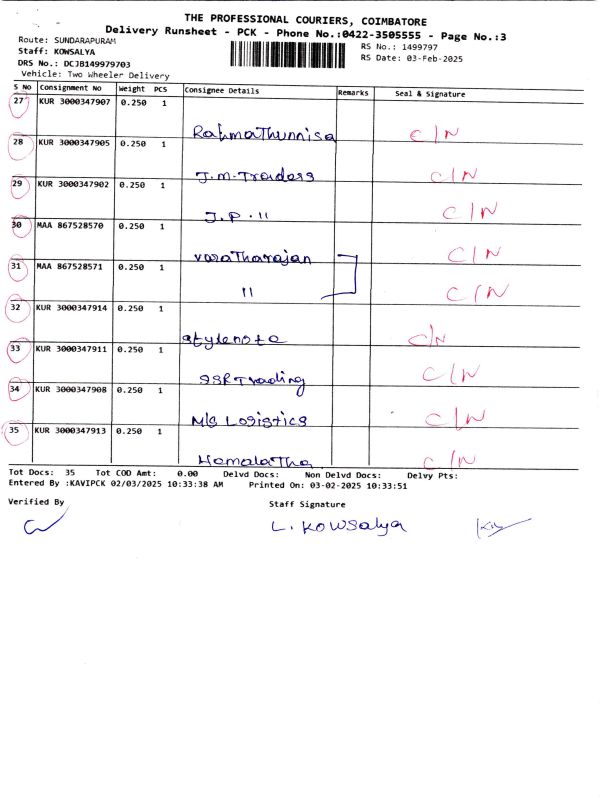 THE PROFESSIONAL COURIERS, COIMBATORE
Delivery Runsheet - PCK - Phone No.:0422-3505555 - Page No.:3
Route: SUNDARAPURAM
RS No.: 1499797
Staff: KOWSALYA
RS Date: 03-Feb-2025
DRS No.: DCJB149979703
Vehicle: Two Wheeler Delivery
S No Consignment No Weight PCS Consignee Details Remarks Seal & Signature
27 KUR 3000347907 0.250 1
RahmaThunnisa C/N
28 KUR 3000347905 0.250 1
J.M-Traders C/N
29 KUR 3000347902 0.250 1
J.P. 11 C/N
30 MAA 867528570 0.250 1
varatharajan C/N
31 MAA 867528571 0.250 1
11 C/N
32 KUR 3000347914 0.250 1
C/N
33 KUR 3000347911 0.250 1
SSR Trading C/N
34 KUR 3000347908 0.250 1
M/s Logistics C/N
35 KUR 3000347913 0.250 1
HemalaTha C/N
Tot Docs: 35 Tot COD Amt: 0.00 Delvd Docs: Non Delvd Docs: Delvy Pts:
Entered By :KAVIPCK 02/03/2025 10:33:38 AM Printed On: 03-02-2025 10:33:51
Verified By Staff Signature
L. Kowsalya